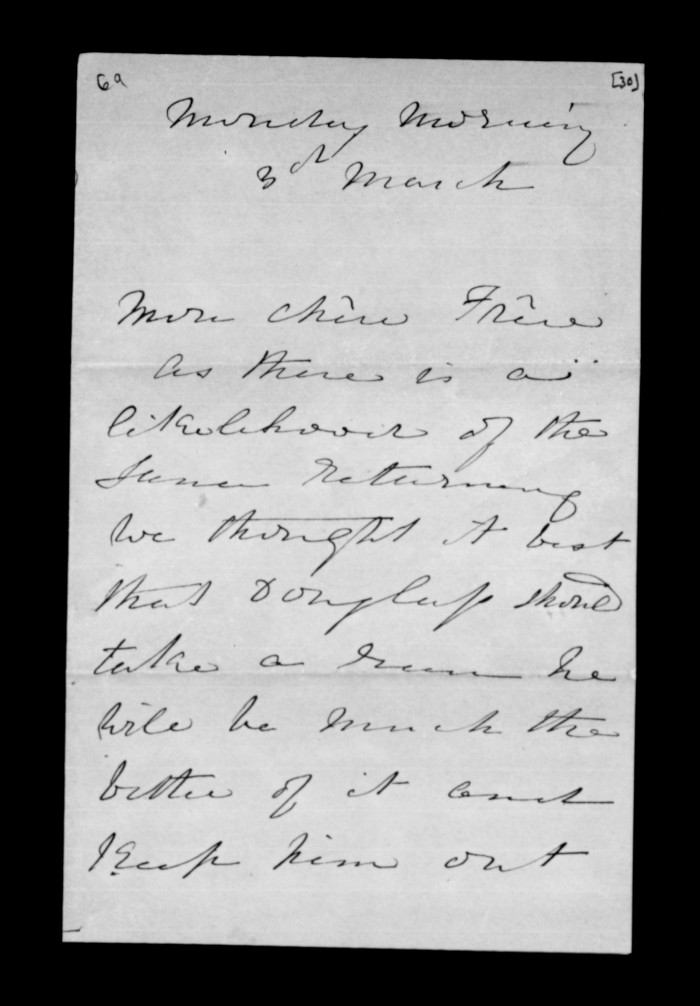 6a
[30]
Monday Morning
3rd March
Mon chère Frère
As there is a
likelihood of the
returning
we thought it best
that Douglass should
take a run he
will be much the
better of it and
Keep him out